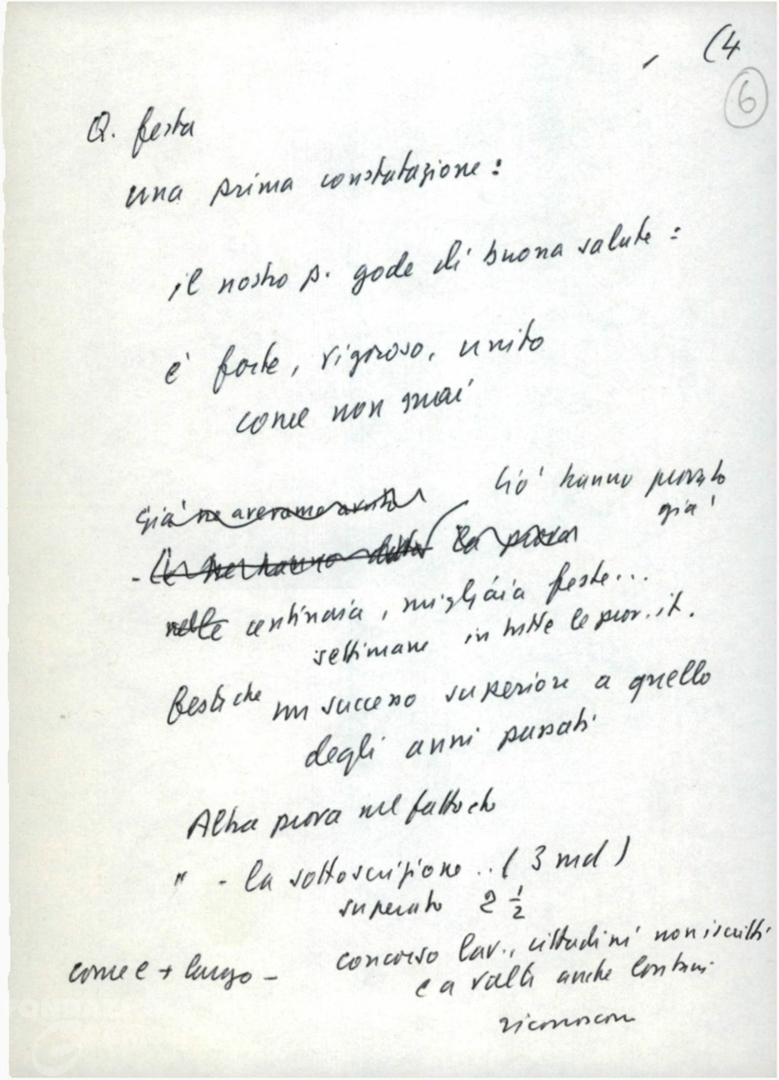 (4
6
Q. festa
una prima constatazione:
il nostro p. gode di buona salute:
è forte, vigoroso, unito
come non mai
Ciò hanno provato
già
Già ne avevamo avuto
La prova
nelle centinaia, migliaia feste...
settimane in tutte le prov. it.
festiche un successo superiore a quello
degli anni passati
Altra prova nel fatto che
" - la sottoscrizione .. (3 md)
superato 2 1/2
concorso lav., cittadini non iscritti
come e + largo -
e a volte anche lontani
riconoscon